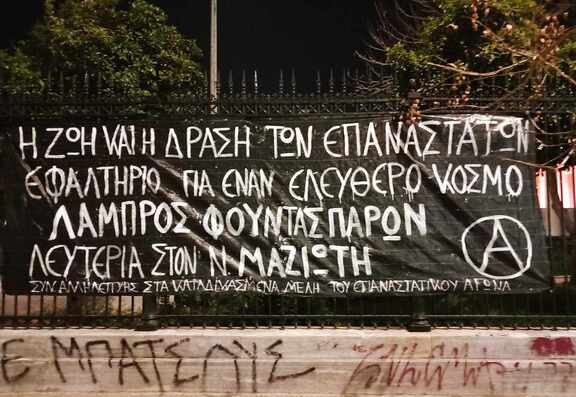 Η ΖΩΗ ΚΑΙ Η ΔΡΑΣΗ ΤΩΝ ΕΠΑΝΑΣΤΑΤΩΝ
ΕΦΑΛΤΗΡΙΟ ΓΙΑ ΕΝΑΝ ΕΛΕΥΘΕΡΟ ΚΟΣΜΟ
ΛΑΜΠΡΟΣ ΦΟΥΝΤΑΣ ΠΑΡΩΝ
ΛΕΥΤΕΡΙΑ ΣΤΟΝ Ν. ΜΑΖΙΩΤΗ
Α
ΣΥΝ ΑΛΛΗΛΕΓΓΥΗ ΣΤΑ ΚΑΤΑΔΙΚΑΣΜΕΝΑ ΜΕΛΗ ΤΟΥ ΕΠΑΝΑΣΤΑΤΙΚΟΥ ΑΓΩΝΑ
ΜΠΑΤΣΟΥΣ